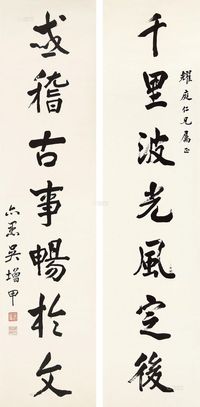 千里波光風定後
耀庭仁兄屬正
或稽古事暢於文
亦愚吳增甲